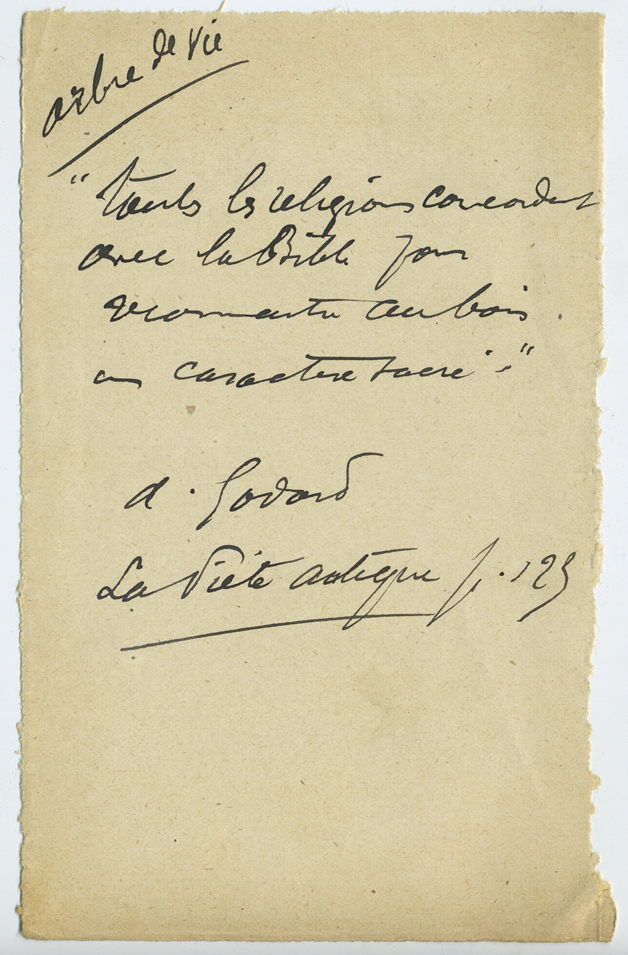 arbre de Vie
"Toutes les religions concordent
avec la Bible pour
reconnaître au bois
un caractère sacré."
A. Godard
La Piété antique p. 123